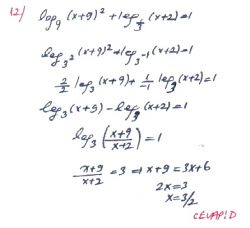 12) log₉ (x+9)² + log_{1/3} (x+2) = 1
log_{3²} (x+9)² + log_{3⁻¹} (x+2) = 1
2/2 log₃ (x+9) + 1/-1 log₃ (x+2) = 1
log₃ (x+9) - log₃ (x+2) = 1
log₃ ((x+9)/(x+2)) = 1
(x+9)/(x+2) = 3 ⇒ x+9 = 3x+6
2x = 3
x = 3/2
CEVAP D